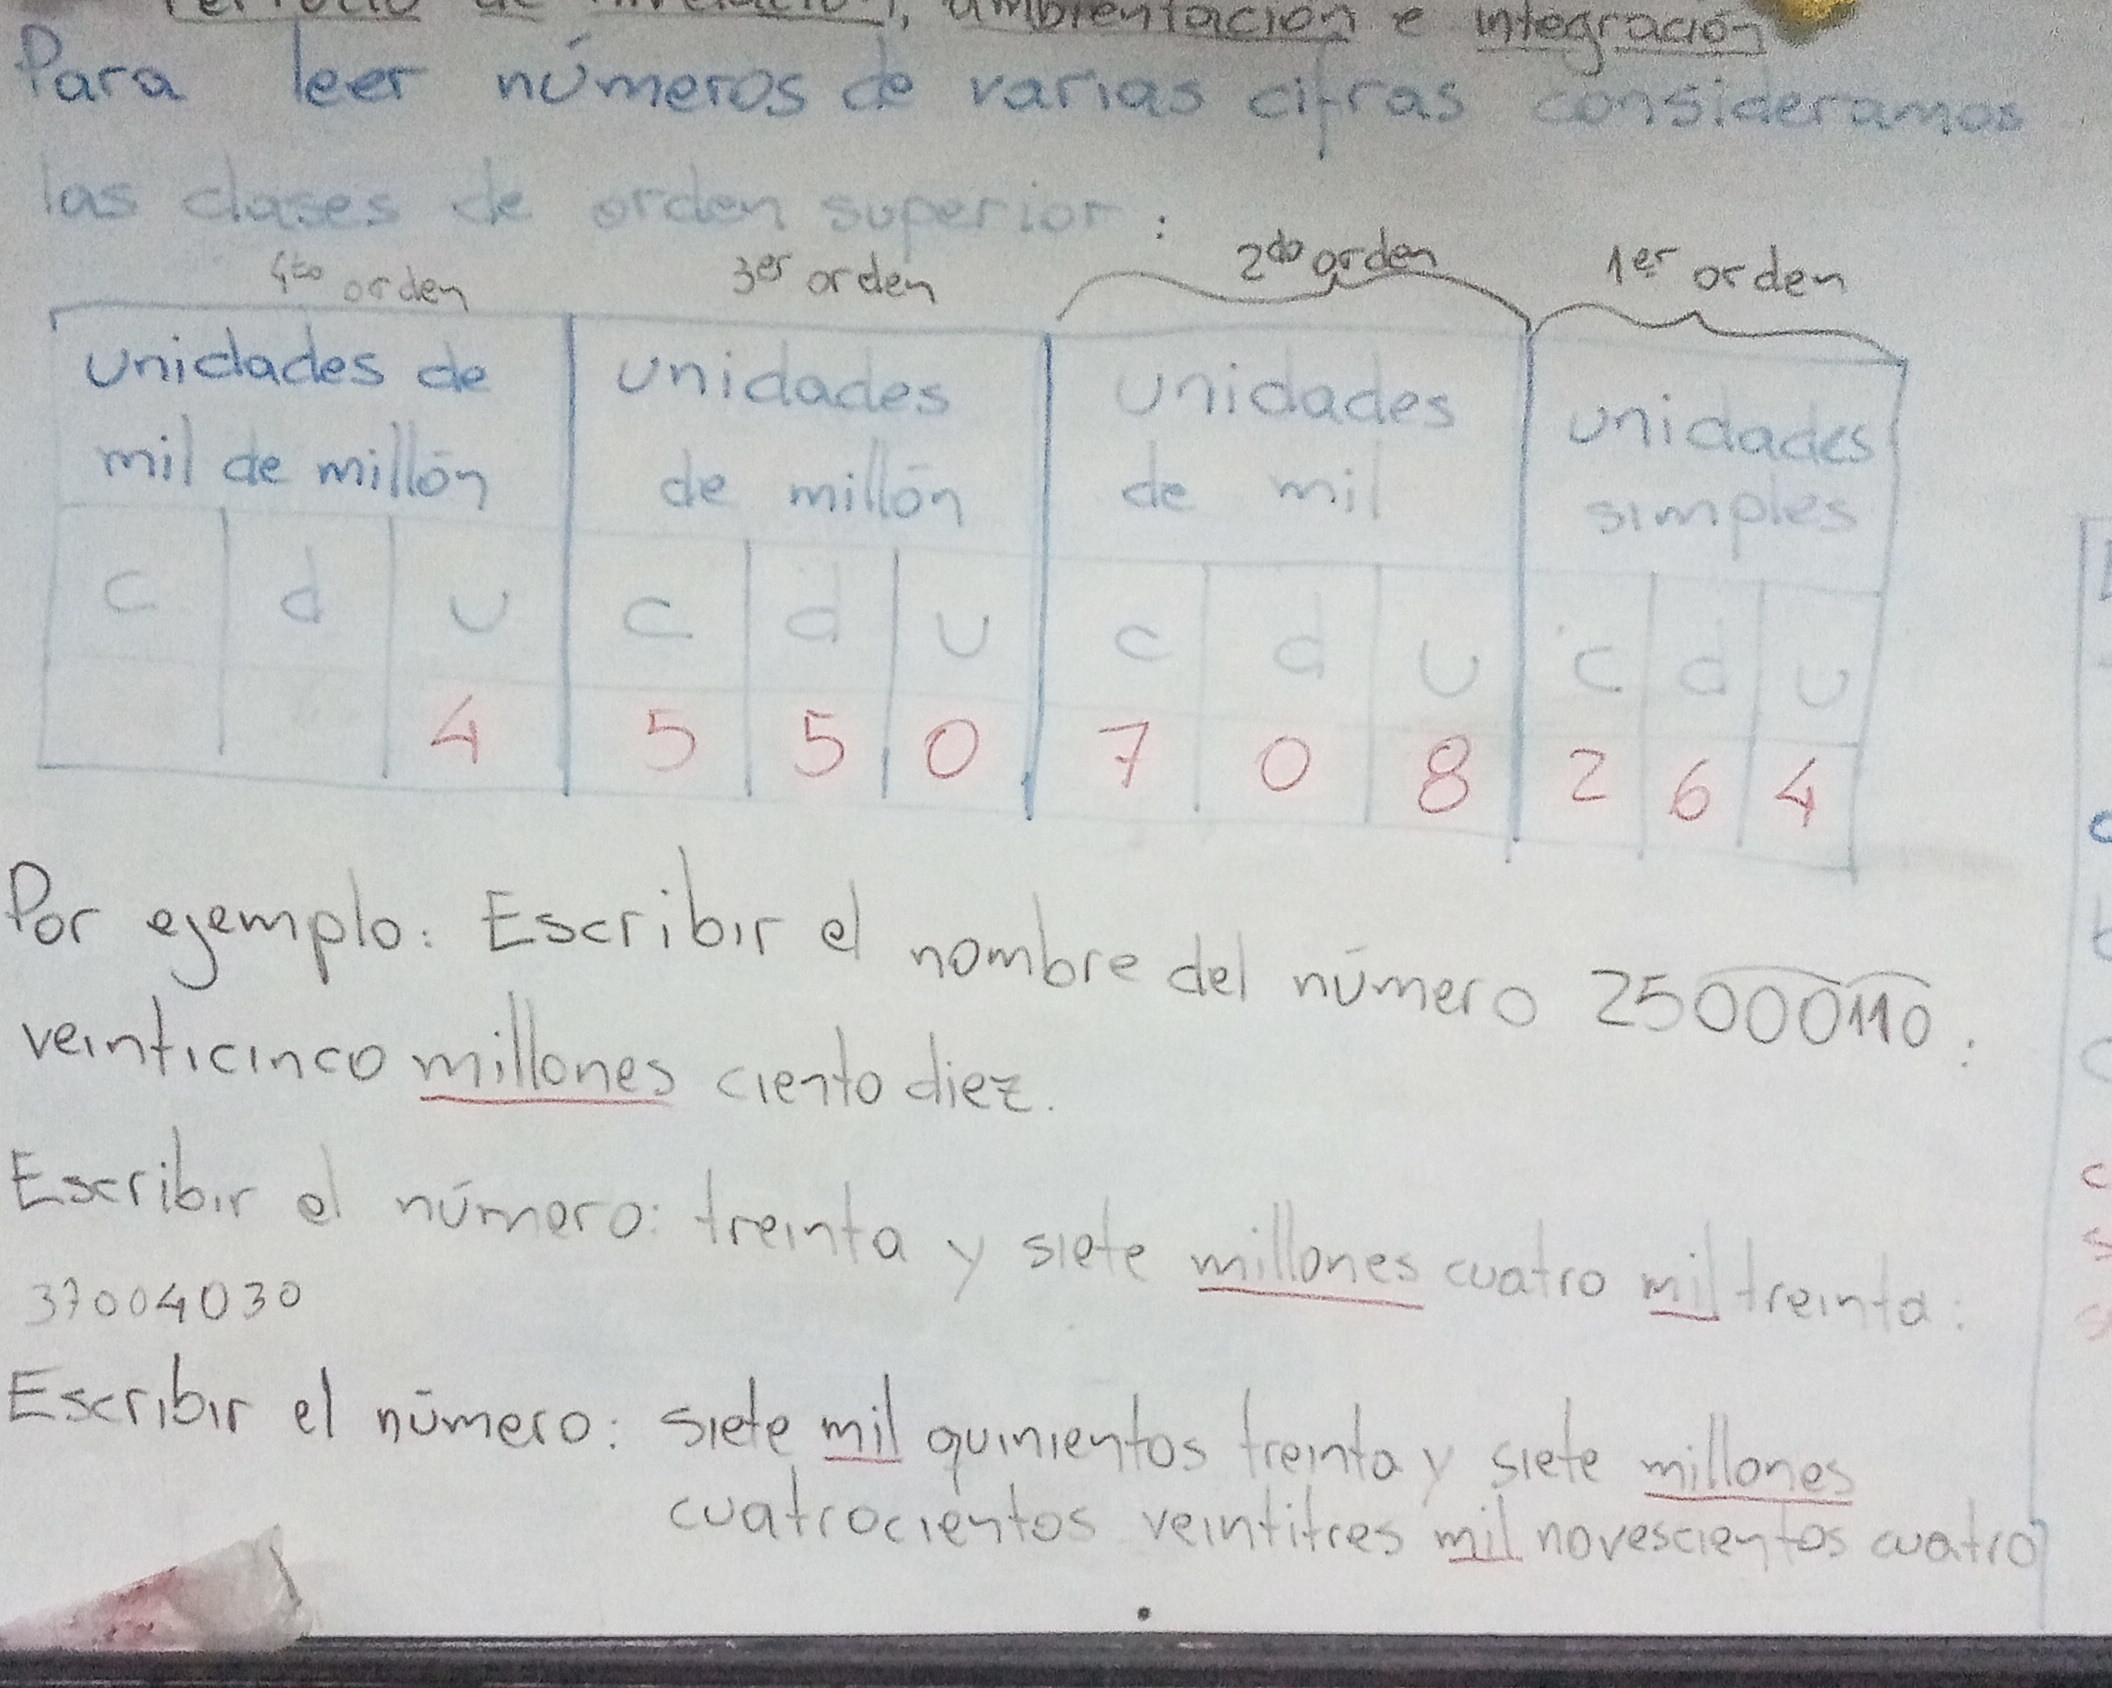 Periodo de nivelación, ambientación e integración
Para leer números de varias cifras consideramos
las clases de orden superior:
4to orden 3er orden 2do orden 1er orden
unidades de mil de millón unidades de millón unidades de mil unidades simples
c d u c d u c d u c d u
4 5 5 0 7 0 8 2 6 4
Por ejemplo: Escribir el nombre del número 25000110:
veinticinco millones ciento diez.
Escribir el número: treinta y siete millones cuatro mil treinta:
37004030
Escribir el número: siete mil quinientos treinta y siete millones
cuatrocientos veintitres mil novescientos cuatro